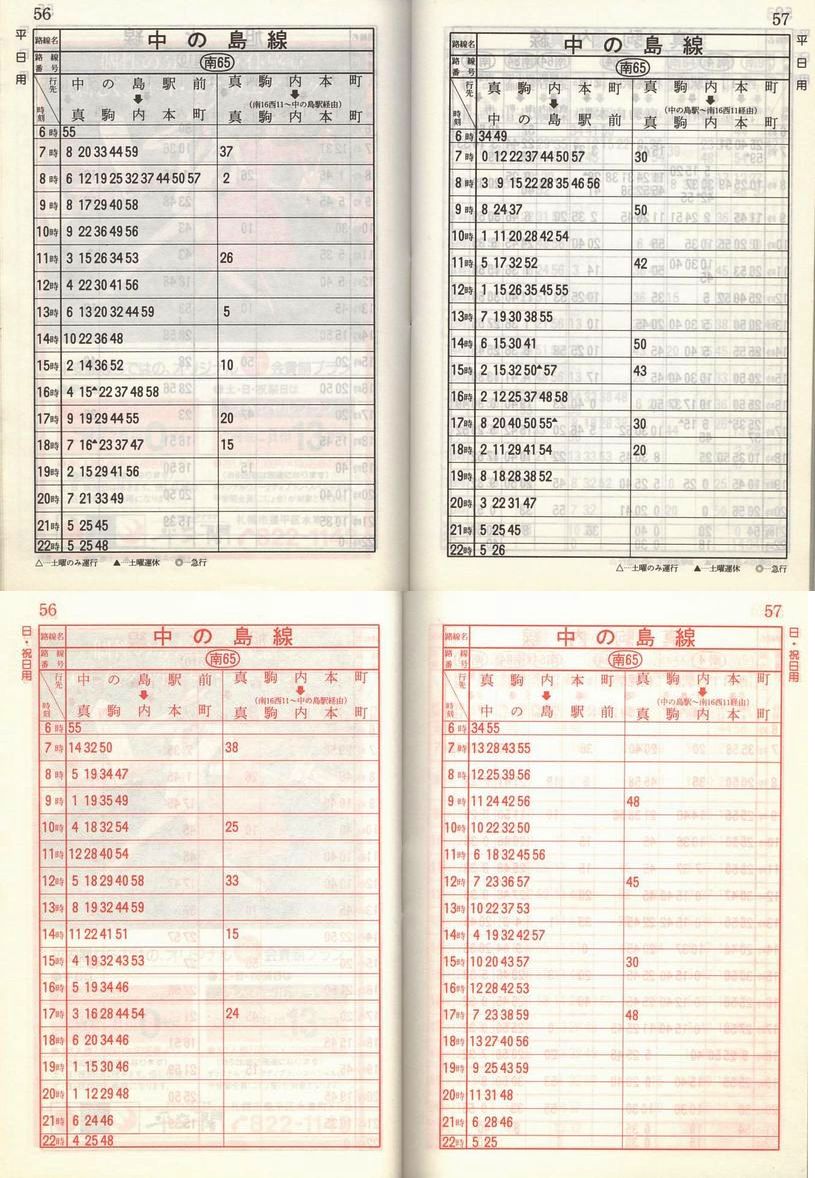 56
平日用
路線名 中の島線
路線番号 南65
行先 時刻
中の島駅前 ↓ 真駒内本町
真駒内本町 ↓ (南16西11〜中の島駅経由) 真駒内本町
6時 55
7時 8 20 33 44 59 37
8時 6 12 19 25 32 37 44 50 57 2
9時 8 17 29 40 58
10時 9 22 36 49 56
11時 3 15 26 34 53 26
12時 4 22 30 41 56
13時 6 13 20 32 44 59 5
14時 10 22 36 48
15時 2 14 36 52 10
16時 4 15▲ 22 37 48 58
17時 9 19 29 44 55 20
18時 7 16▲ 23 37 47 15
19時 2 15 29 41 56
20時 7 21 33 49
21時 5 25 45
22時 5 25 48
△…土曜のみ運行 ▲…土曜運休 ◎…急行
57
平日用
路線名 中の島線
路線番号 南65
行先 時刻
真駒内本町 ↓ 中の島駅前
真駒内本町 ↓ (中の島駅〜南16西11経由) 真駒内本町
6時 34 49
7時 0 12 22 37 44 50 57 30
8時 3 9 15 22 28 35 46 56
9時 8 24 37 50
10時 1 11 20 28 42 54
11時 5 17 32 52 42
12時 1 15 26 35 45 55
13時 7 19 30 38 55
14時 6 15 30 41 50
15時 2 15 32 50▲ 57 43
16時 2 12 25 37 48 58
17時 8 20 40 50 55▲ 30
18時 2 11 29 41 54 20
19時 8 18 28 38 52
20時 3 22 31 47
21時 5 25 45
22時 5 26
△…土曜のみ運行 ▲…土曜運休 ◎…急行
56
日・祝日用
路線名 中の島線
路線番号 南65
行先 時刻
中の島駅前 ↓ 真駒内本町
真駒内本町 ↓ (南16西11〜中の島駅経由) 真駒内本町
6時 55
7時 14 32 50 38
8時 5 19 34 47
9時 1 19 35 49
10時 4 18 32 54 25
11時 12 28 40 54
12時 5 18 29 40 58 33
13時 8 19 32 44 59
14時 11 22 41 51 15
15時 4 19 32 43 53
16時 5 19 34 46
17時 3 16 28 44 54 24
18時 6 20 34 46
19時 1 15 30 46
20時 1 12 29 48
21時 6 24 46
22時 4 25 48
57
日・祝日用
路線名 中の島線
路線番号 南65
行先 時刻
真駒内本町 ↓ 中の島駅前
真駒内本町 ↓ (中の島駅〜南16西11経由) 真駒内本町
6時 34 55
7時 13 28 43 55
8時 12 25 39 56
9時 11 24 42 56 48
10時 10 22 32 50
11時 6 18 32 45 56
12時 7 23 36 57 45
13時 10 22 37 53
14時 4 19 32 42 57
15時 10 20 43 57 30
16時 12 28 42 53
17時 7 23 38 59 48
18時 13 27 40 56
19時 9 25 43 59
20時 11 31 48
21時 6 28 46
22時 5 25